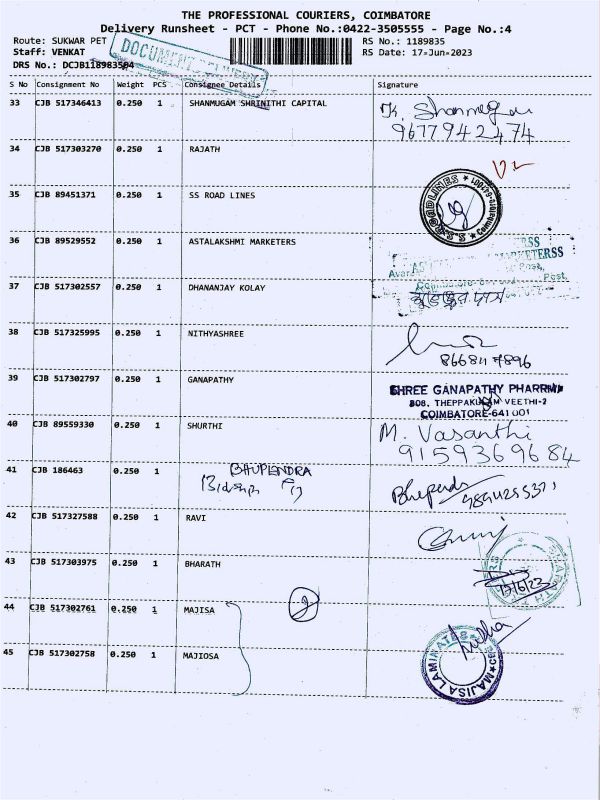 THE PROFESSIONAL COURIERS, COIMBATORE
Delivery Runsheet - PCT - Phone No.:0422-3505555 - Page No.:4
Route: SUKWAR PET RS No.: 1189835
Staff: VENKAT RS Date: 17-Jun-2023
DOCUMENT
DRS No.: DCJB118983504
S No Consignment No Weight PCS Consignee Details Signature
33 CJB 517346413 0.250 1 SHANMUGAM SHRINITHI CAPITAL
9677942474
34 CJB 517303270 0.250 1 RAJATH
35 CJB 89451371 0.250 1 SS ROAD LINES
36 CJB 89529552 0.250 1 ASTALAKSHMI MARKETERS
37 CJB 517302557 0.250 1 DHANANJAY KOLAY
38 CJB 517325995 0.250 1 NITHYASHREE
39 CJB 517302797 0.250 1 GANAPATHY
SHREE GANAPATHY PHARMA
808, THEPPAKULAM VEETHI-2
COIMBATORE-641 001
40 CJB 89559330 0.250 1 SHURTHI
M. Vasanthi
9159369684
41 CJB 186463 0.250 1 BHUPENDRA
42 CJB 517327588 0.250 1 RAVI
43 CJB 517303975 0.250 1 BHARATH
44 CJB 517302761 0.250 1 MAJISA 2
45 CJB 517302758 0.250 1 MAJIOSA
MAJISA LAMINATES